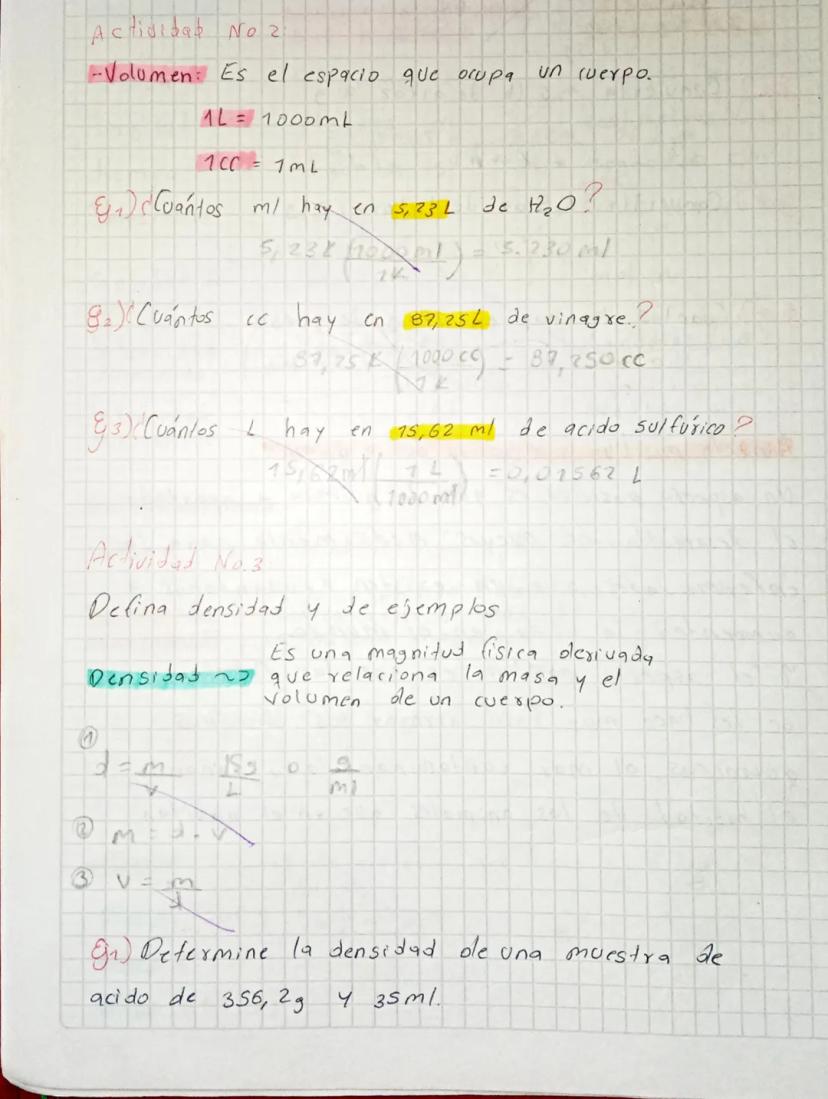 Actividad No 2:
-Volumen: Es el espacio que ocupa un cuerpo.
1L = 1000mL
1CC = 1mL
Ej1) ¿Cuántos ml hay en 5,23 L de H₂O?
5,23L (1000ml / 1L) = 5.230 ml
Ej2) ¿Cuántos cc hay en 87,25L de vinagre.?
87,25 L (1000 cc / 1L) = 87,250 cc
Ej3) ¿Cuántos L hay en 15,62 ml de acido sulfúrico?
15,62ml (1 L / 1000ml) = 0,01562 L
Actividad No.3
Defina densidad y de ejemplos
Es una magnitud física derivada
Densidad ~> que relaciona la masa y el
volumen de un cuerpo.
①
d = m/v g/ml
② m = d . v
③ v = m/d
Ej1) Determine la densidad de una muestra de
acido de 356,2g y 35ml.